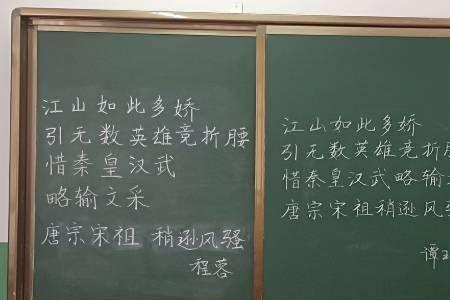 江山如此多娇
引无数英雄竞折腰
惜秦皇汉武
略输文采
唐宗宋祖 稍逊风骚
程蓉
江山如此多娇
引无数英雄竞折
惜秦皇汉武略输
唐宗宋祖稍逊风
谭